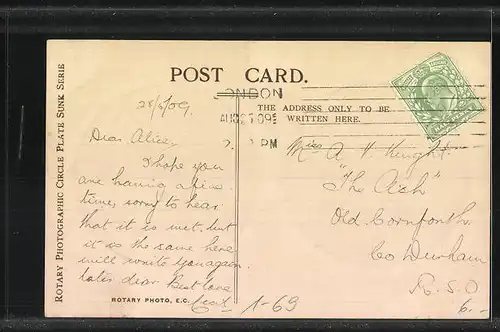 POST CARD.
THE ADDRESS ONLY TO BE
WRITTEN HERE.
LONDON
AUG 25 09
PM
ROTARY PHOTOGRAPHIC CIRCLE PLATE SUNK SERIE
28/8/09
Dear Alice,
I hope you
are having a fine
time, sorry to hear
that it is wet, but
it is the same here
will write you again
later dear Best love
Miss A. V. Knight
"The Ash"
Old Cornforth
Co Durham
R.S.O
6.-
ROTARY PHOTO, E.C.
1-69